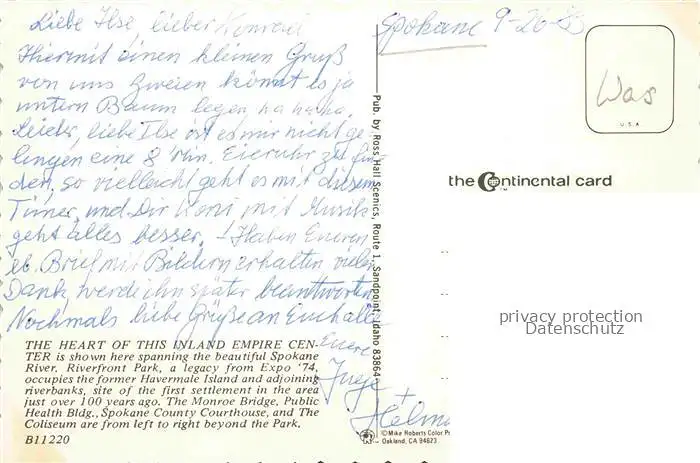 Liebe Ilse, lieber Konrad
Hiermit einen kleinen Gruß
von uns Zweien könnt es ja
unterm Baum legen, ha ha ha.
Leider, liebe Ilse ist es mir nicht ge-
lingen eine 8 Min. Eieruhr zu fin-
den, so vielleicht geht es mit diesem
Timer, und Dir Koni mit Musik
geht alles besser. Haben Eueren
lb. Brief mit Bildern erhalten, vielen
Dank, werde ihn später beantworten.
Nochmals liebe Grüße an Euch alle
Euere
Inge +
Helmut
THE HEART OF THIS INLAND EMPIRE CEN-
TER is shown here spanning the beautiful Spokane
River. Riverfront Park, a legacy from Expo '74,
occupies the former Havermale Island and adjoining
riverbanks, site of the first settlement in the area
just over 100 years ago. The Monroe Bridge, Public
Health Bldg., Spokane County Courthouse, and The
Coliseum are from left to right beyond the Park.
B11220
Pub. by Ross Hall Scenics, Route 1, Sandpoint, Idaho 83864
©Mike Roberts Color Pr
Oakland, CA 94623
Spokane 9-26-83
Was
U.S.A
the Continental card
privacy protection
Datenschutz